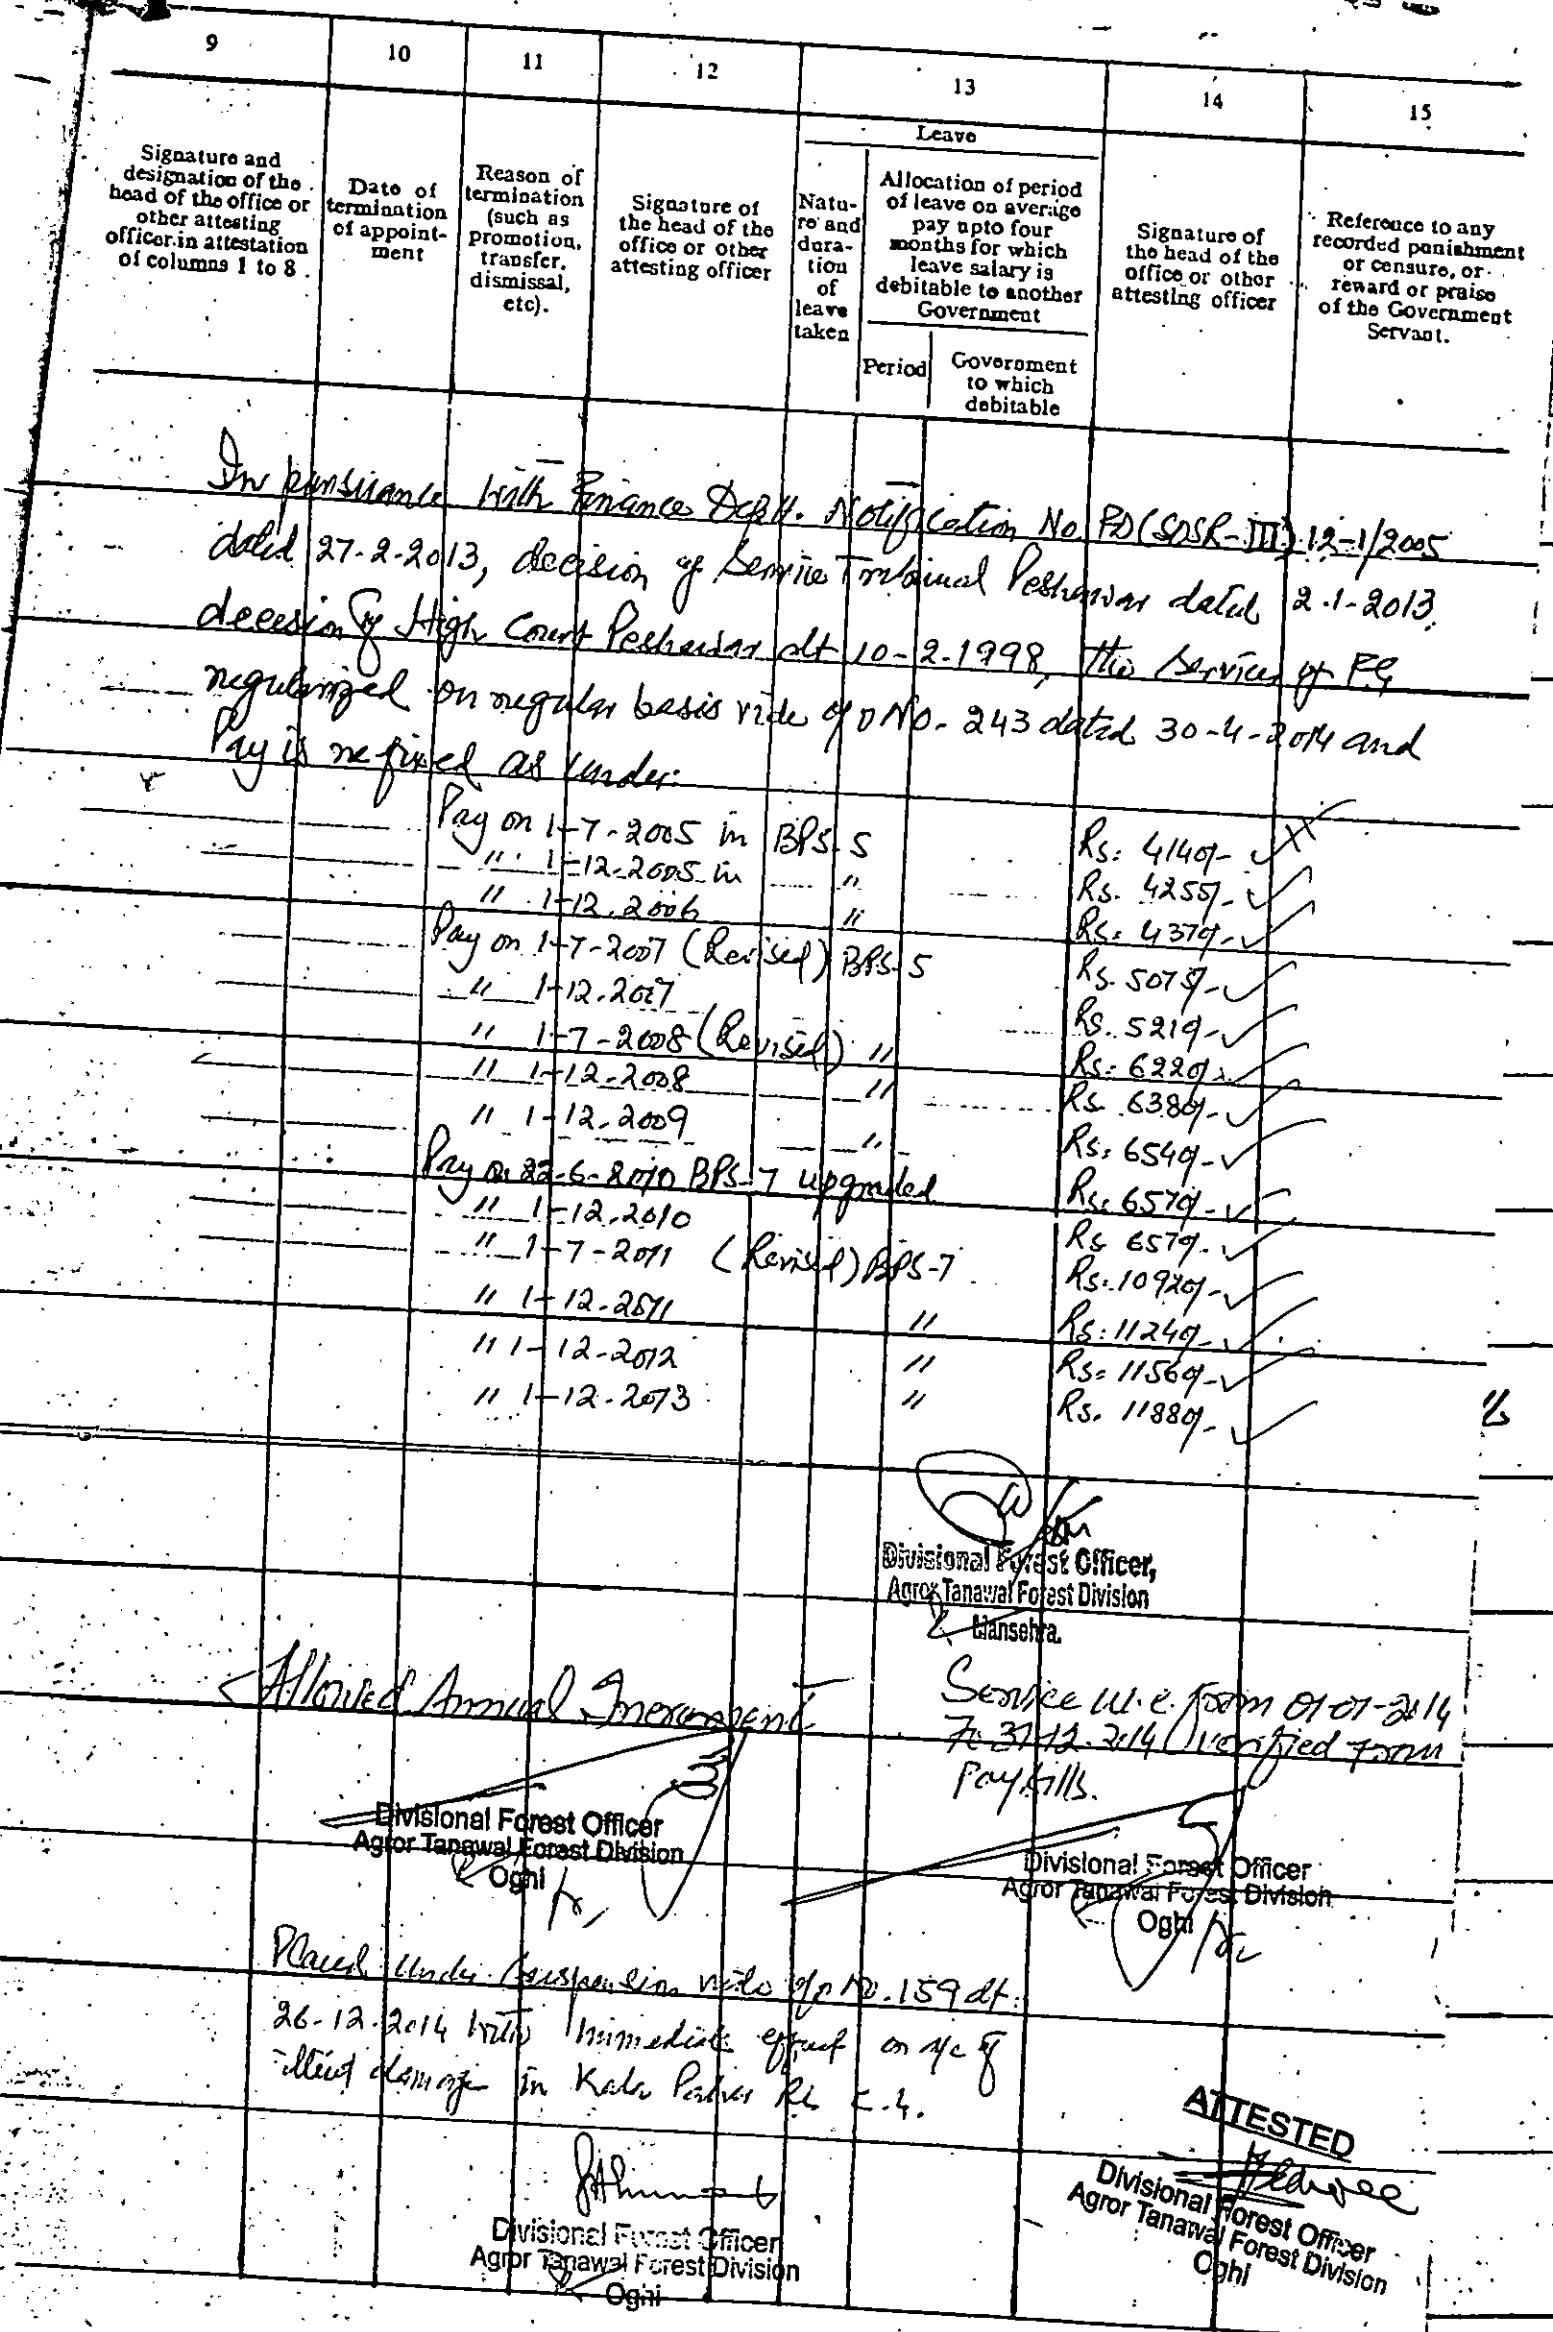 9 10 11 12 13 14 15
Signature and designation of the head of the office or other attesting officer in attestation of columns 1 to 8.
Date of termination of appoint-ment
Reason of termination (such as promotion, transfer, dismissal, etc).
Signature of the head of the office or other attesting officer
Leave
Natu-re and dura-tion of leave taken
Allocation of period of leave on average pay upto four months for which leave salary is debitable to another Government
Period
Government to which debitable
Signature of the head of the office or other attesting officer
Reference to any recorded punishment or censure, or reward or praise of the Government Servant.
In pursuance with Finance Deptt. Notification No. FD(SOSR-III) 12-1/2005
dated 27-2-2013, decision of Service Tribunal Peshawar dated 2-1-2013,
decesion of High Court Peshawar dt 10-2-1998, the services of F.G
regularized on regular basis vide o/o No. 243 dated 30-4-2014 and
Pay is re fixed as under:
Pay on 1-7-2005 in BPS-5 Rs: 4140/-
" 1-12-2005 in " Rs. 4255/-
" 1-12-2006 " Rs: 4370/-
Pay on 1-7-2007 (Revised) BPS-5 Rs. 5075/-
" 1-12-2007 Rs. 5219/-
" 1-7-2008 (Revised) " Rs: 6220/-
" 1-12-2008 " Rs. 6380/-
" 1-12-2009 " Rs: 6540/-
Pay on 22-6-2010 BPS-7 upgraded Rs: 6570/-
" 1-12-2010 Rs 6570/-
" 1-7-2011 (Revised) BPS-7 Rs: 10920/-
" 1-12-2011 " Rs: 11240/-
" 1-12-2012 " Rs: 11560/-
" 1-12-2013 " Rs. 11880/-
Divisional Forest Officer,
Agror Tanawal Forest Division
Mansehra.
Allowed Annual Increment
Divisional Forest Officer
Agror Tanawal Forest Division
Oghi
Service w.e. from 01-01-2014
To 31-12-2014 verified from
Pay bills.
Divisional Forest Officer
Agror Tanawal Forest Division
Oghi
Placed under suspension vide o/o No. 159 dt:
26-12-2014 with immediate effect on a/c of
illicit damage in Kala
Divisional Forest Officer
Agror Tanawal Forest Division
Oghi
ATTESTED
Divisional Forest Officer
Agror Tanawal Forest Division
Oghi